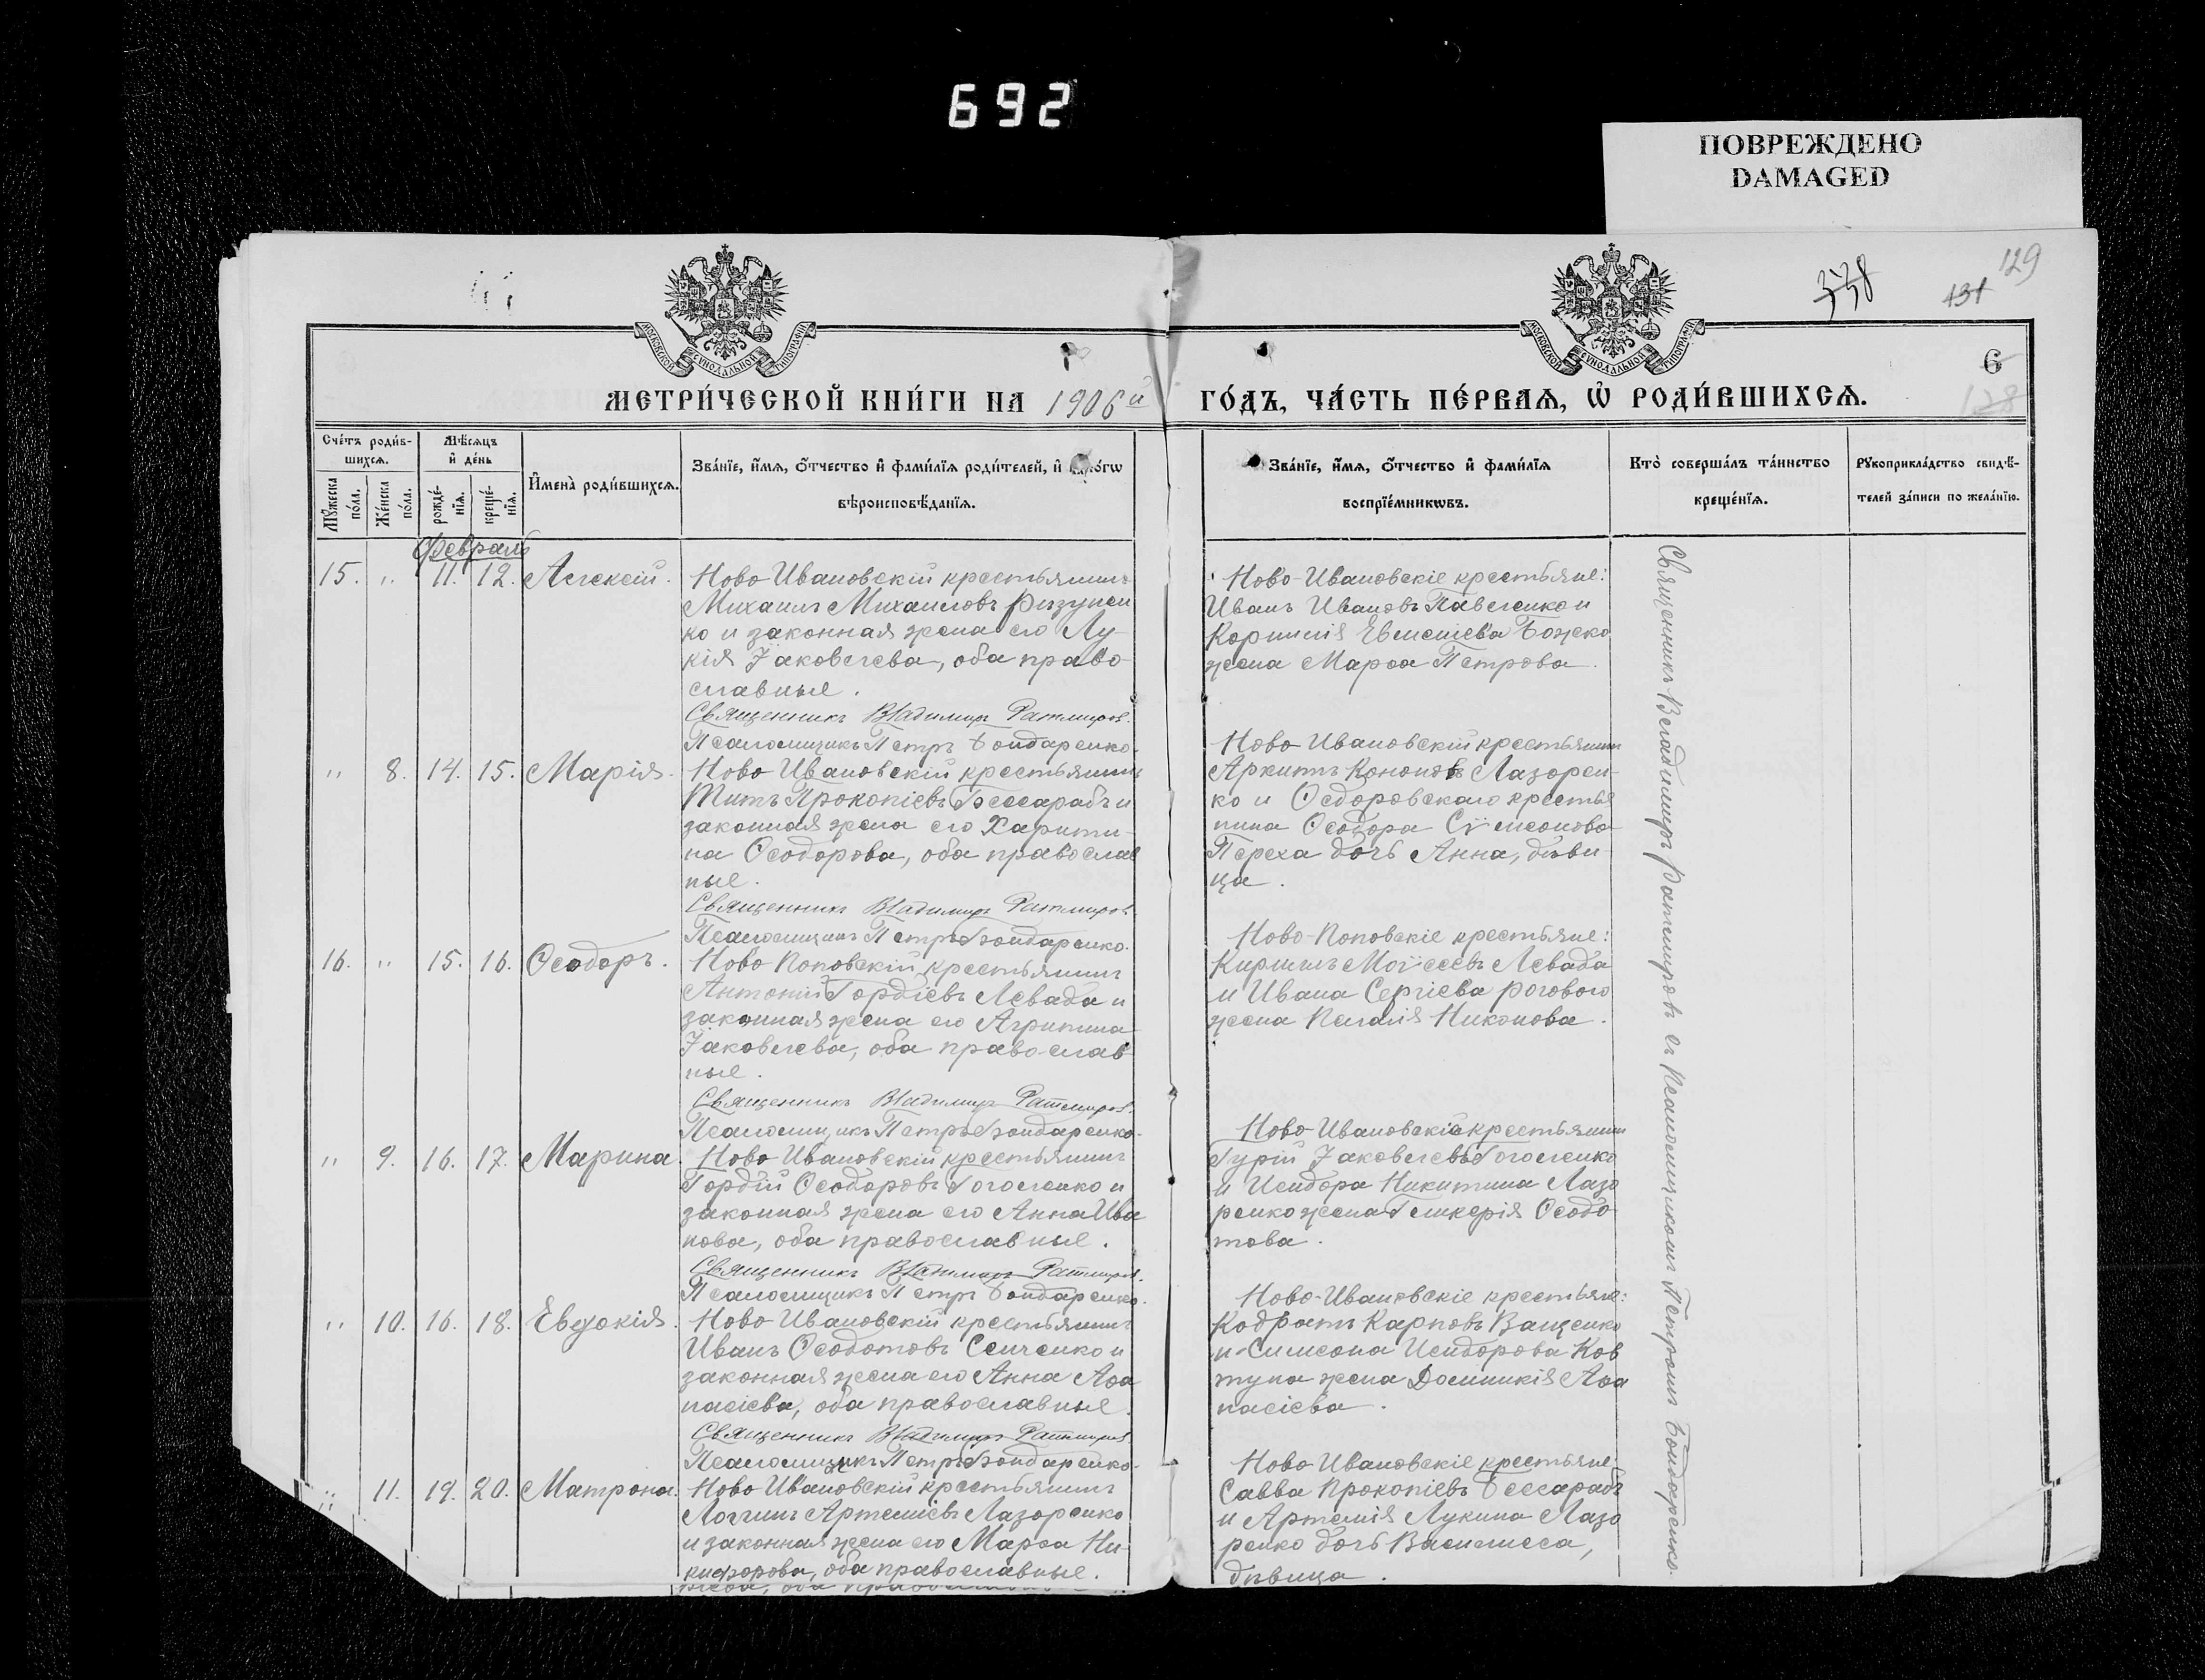 692
ПОВРЕЖДЕНО
DAMAGED
338
131
129
МОСКОВСКОЙ СѴНОДАЛЬНОЙ ТИПОГРАФІИ
МОСКОВСКОЙ СѴНОДАЛЬНОЙ ТИПОГРАФІИ
6
128
МЕТРИ́ЧЕСКОЙ КНИ́ГИ НА 1906й ГО́ДЪ, ЧА́СТЬ ПЕ́РВАѦ, Ѡ҆ РОДИ́ВШИХСѦ.
Сче́тъ роди́в-
шихсѧ.
Мꙋ́жеска по́ла.
Же́нска по́ла.
Мѣ́сѧцъ
и҆ де́нь
рожде́-
нїѧ.
креще́-
нїѧ.
И҆мена̀ роди́вшихсѧ.
Зва́нїе, и҆́мѧ, ѻ҆́тчество и҆ фами́лїѧ роди́телей, и҆ како́гѡ
вѣроисповѣ́данїѧ.
Зва́нїе, и҆́мѧ, ѻ҆́тчество и҆ фами́лїѧ
воспрїе́мникѡвъ.
Кто̀ соверша́лъ та́инство
креще́нїѧ.
Рꙋкоприкла́дство свидѣ́-
телей за́писи по жела́нїю.
Февраль
15. " 11. 12. Алексій.
Ново-Ивановскій крестьянинъ
Михаилъ Михаиловъ Ризунен
ко и законная жена его Лу-
кія Іаковлева, оба право
славные.
Священникъ Владимиръ Ратмировъ.
Псаломщикъ Петръ Бондаренко.
Ново-Ивановскіе крестьяне:
Иванъ Ивановъ Павленко и
Корнилія Евменіева Божко
жена Марѳа Петрова.
" 8. 14. 15. Марія.
Ново Ивановскій крестьянинъ
Титъ Прокопіевъ Бессарабъ и
законная жена его Харити-
на Ѳеодорова, оба православ
ные.
Священникъ Владимиръ Ратмировъ.
Псаломщикъ Петръ Бондаренко.
Ново Ивановскій крестьянинъ
Кононовъ Лазорен-
ко и Ѳедоровскаго крестья
нина Ѳеодора Сѵмеонова
Переха дочь Анна, дѣви-
ца.
16. " 15. 16. Ѳеодоръ.
Ново Поповскій крестьянинъ
Антоній Гордіевъ Левада и
законная жена его Агрипина
Іаковлева, оба православ
ные.
Священникъ Владимиръ Ратмировъ.
Псаломщикъ Петръ Бондаренко.
Ново-Поповскіе крестьяне:
Кириллъ Моѵсеевъ Левада
и Ивана Сергіева Рогового
жена Пелагія Никонова.
" 9. 16. 17. Марина.
Ново Ивановскій крестьянинъ
Гордій Ѳеодоровъ Гоголенко и
законная жена его Анна Ива
нова, оба православные.
Священникъ Владимиръ Ратмировъ.
Псаломщикъ Петръ Бондаренко.
Ново Ивановскіе крестьянинъ
Гурій Іаковлевъ Гоголенко
и Исидора Никитина Лазо
ренко жена Гликерія Ѳеодо
това.
" 10. 16. 18. Евдокія.
Ново Ивановскій крестьянинъ
Иванъ Ѳеодотовъ Сенченко и
законная жена его Анна Аѳа
насіева, оба православные.
Священникъ Владимиръ Ратмировъ
Псаломщикъ Петръ Бондаренко.
Ново-Ивановскіе крестьяне:
Кодратъ Карповъ Ващенко
и Симеона Исидорова Ков
туна жена Домникія Аѳа
насіева.
" 11. 19. 20. Матрона.
Ново Ивановскій крестьянинъ
Логгинъ Артеміевъ Лазоренко
и законная жена его Марѳа Ни-
кифорова, оба православные.
Ново Ивановскіе крестьяне
Савва Прокопіевъ Бессарабъ
и Артемія Лукина Лазо
ренко дочь Василисса,
дѣвица.
Священникъ Владимиръ Ратмировъ съ псаломщикомъ Петромъ Бондаренко.